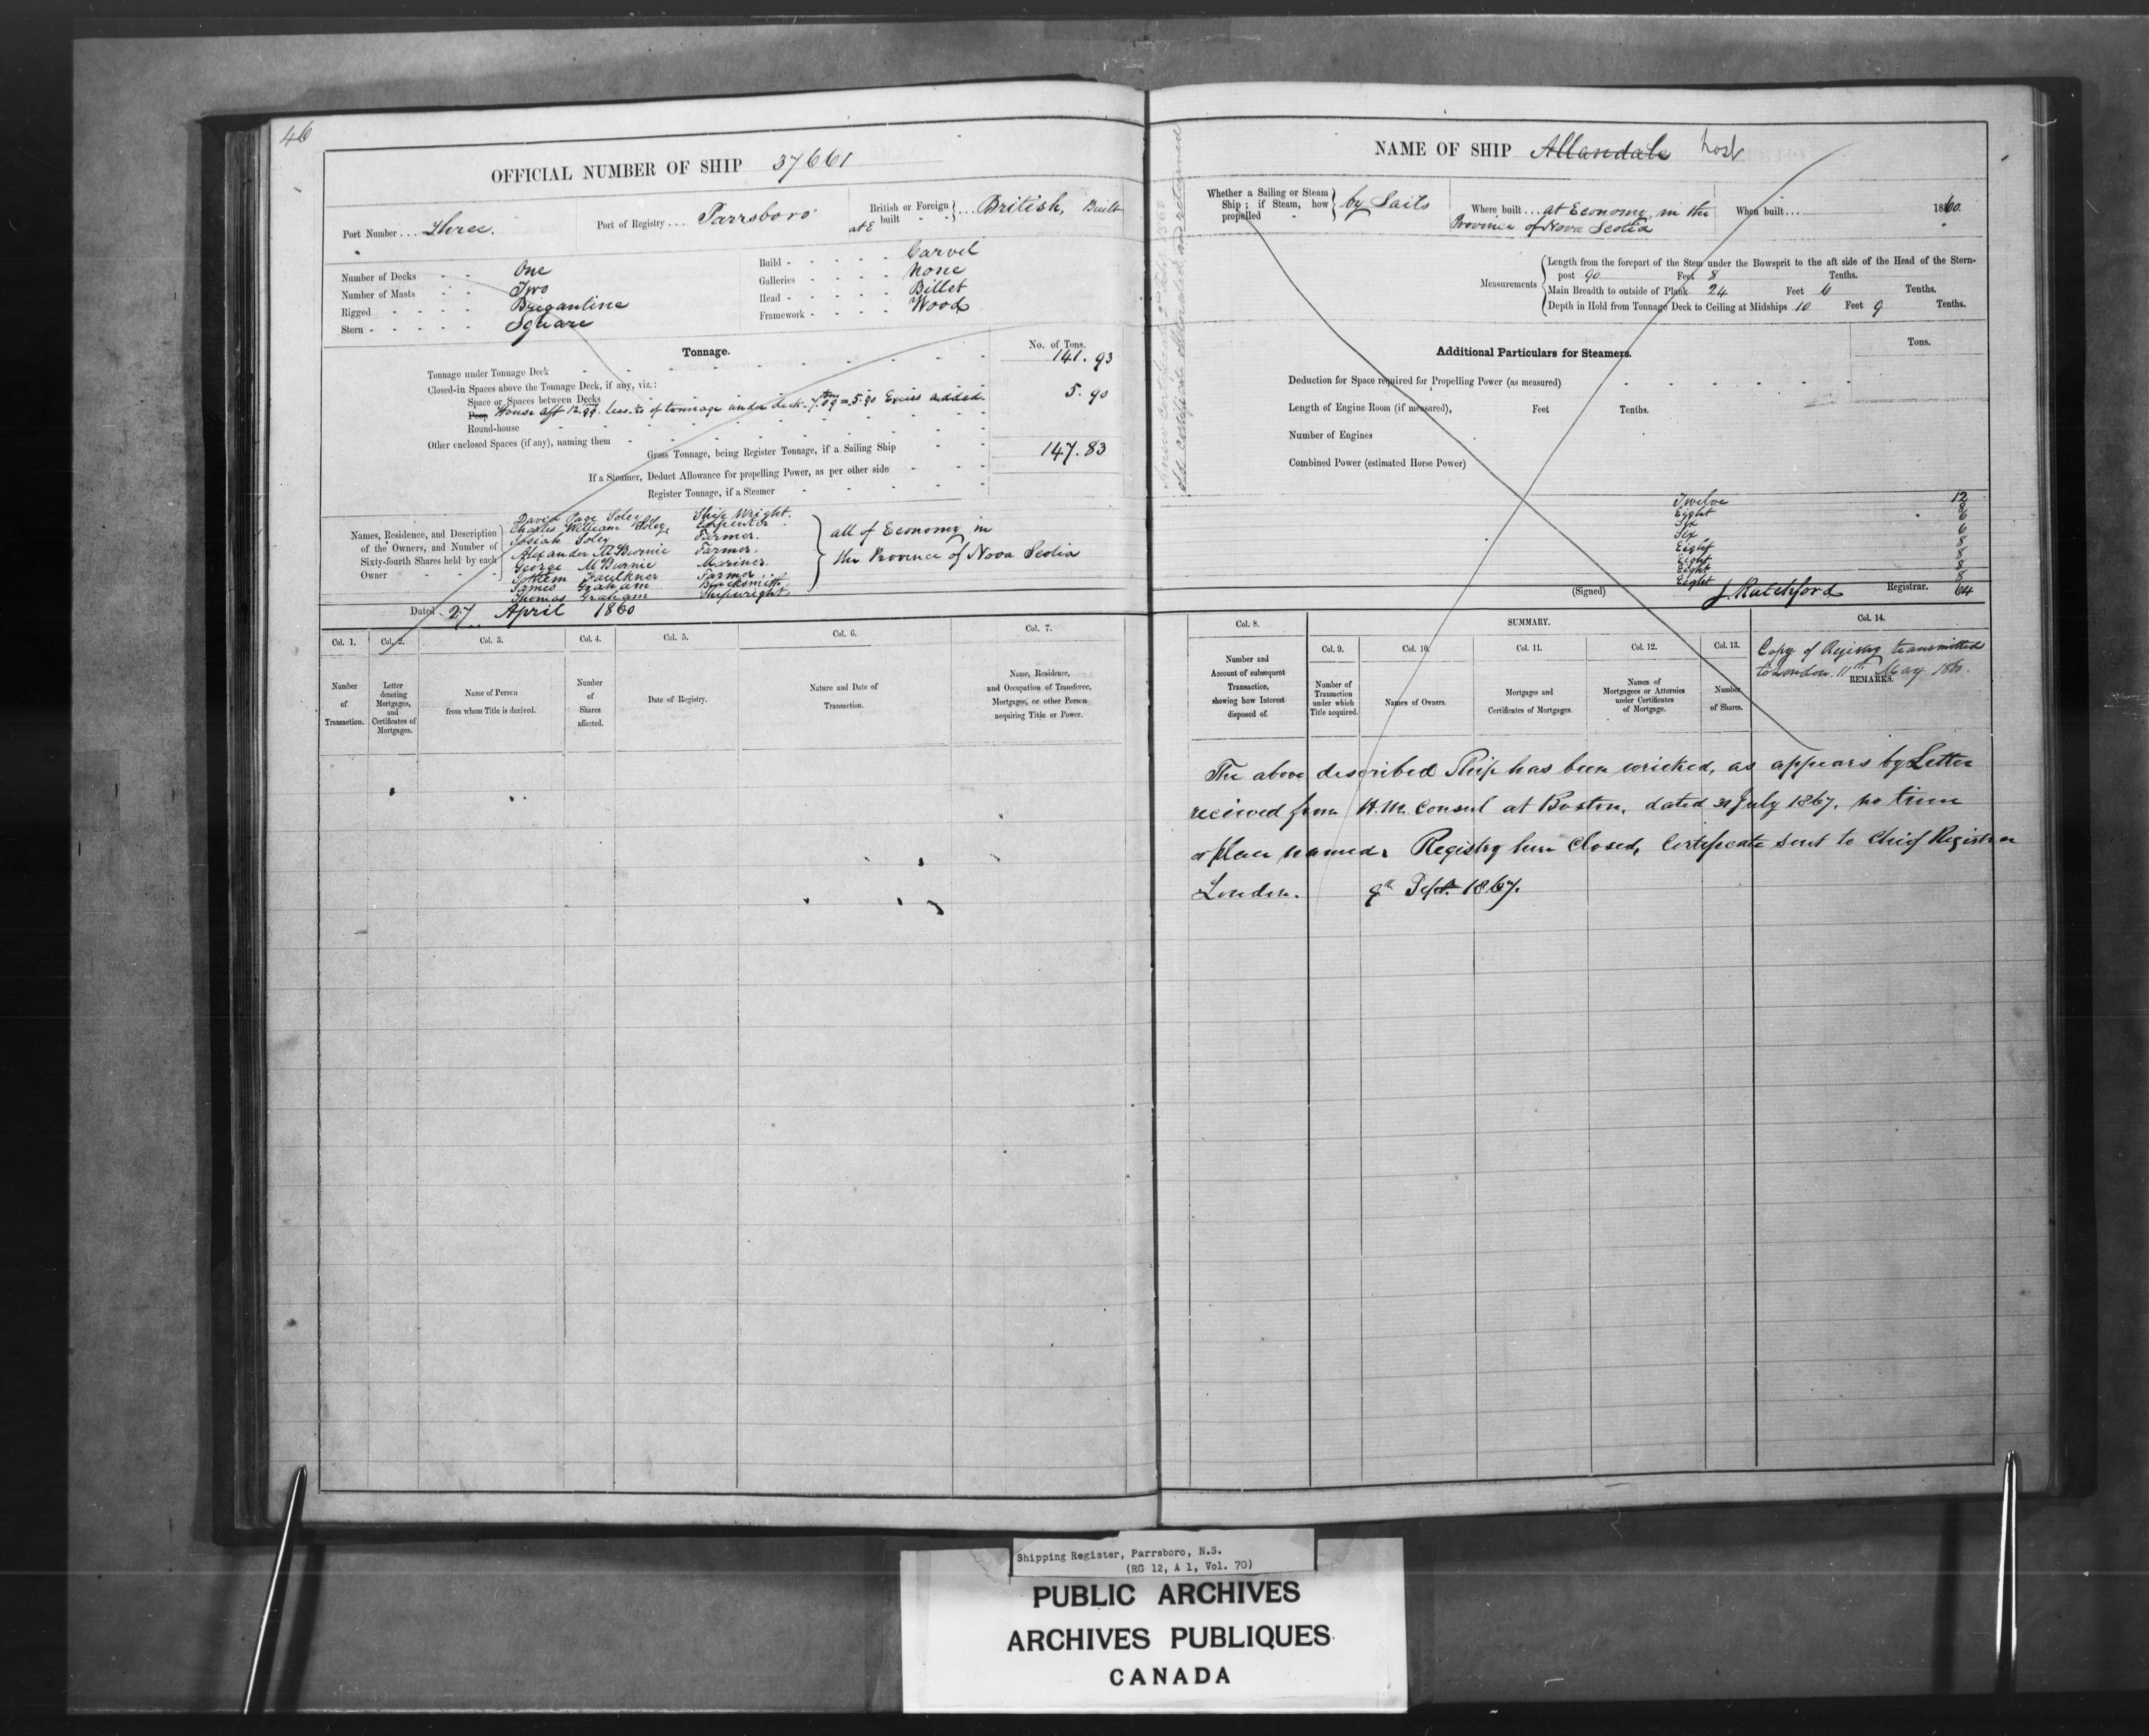 46
OFFICIAL NUMBER OF SHIP 37661
Port Number ... Three.
Port of Registry .... Parrsboro
British or Foreign built } ... British, Built
at E
Number of Decks - - One
Number of Masts - - Two
Rigged - - - - Brigantine
Stern - - - - - Square
Build - - - - - Carvel
Galleries - - - - None
Head - - - - - Billet
Framework - - - - Wood
Tonnage.
No. of Tons.
Tonnage under Tonnage Deck 141. 93
Closed-in Spaces above the Tonnage Deck, if any, viz.:
Space or Spaces between Decks
Poop House aft 12.99. less of tonnage under deck - 7.09 = 5.90 Excess added 5. 90
Round-house
Other enclosed Spaces (if any), naming them
Gross Tonnage, being Register Tonnage, if a Sailing Ship 147. 83
If a Steamer, Deduct Allowance for propelling Power, as per other side
Register Tonnage, if a Steamer
Names, Residence, and Description of the Owners, and Number of Sixty-fourth Shares held by each Owner
David Page Soley Ship Wright.
Charles William Soley Carpenter.
Josiah Soley Farmer.
Alexander McBurnie Farmer.
George McBurnie Mariner.
Faulkner Farmer.
James Graham Blacksmith.
Thomas Graham Shipwright.
all of Economy in
the Province of Nova Scotia
Dated 27 April 1860
Col. 1. Col. 2. Col. 3. Col. 4. Col. 5. Col. 6. Col. 7.
Number of Transaction.
Letter denoting Mortgages, and Certificates of Mortgages.
Name of Person from whom Title is derived.
Number of Shares affected.
Date of Registry.
Nature and Date of Transaction.
Name, Residence, and Occupation of Transferee, Mortgagee, or other Person acquiring Title or Power.
old certificate and returned
NAME OF SHIP Allandale Lost
Whether a Sailing or Steam Ship; if Steam, how propelled } by Sails
Where built ... at Economy in the
Province of Nova Scotia
When built ... 1860.
Measurements
Length from the forepart of the Stem under the Bowsprit to the aft side of the Head of the Stern-
post 90 Feet 8 Tenths.
Main Breadth to outside of Plank 24 Feet 6 Tenths.
Depth in Hold from Tonnage Deck to Ceiling at Midships 10 Feet 9 Tenths.
Additional Particulars for Steamers.
Tons.
Deduction for Space required for Propelling Power (as measured)
Length of Engine Room (if measured), Feet Tenths.
Number of Engines
Combined Power (estimated Horse Power)
Twelve 12
Eight 8
Six 6
Six 6
Eight 8
Eight 8
Eight 8
Eight 8
(Signed) J. Ratchford Registrar. 64
Col. 8. SUMMARY. Col. 14.
Col. 9. Col. 10. Col. 11. Col. 12. Col. 13.
Number and Account of subsequent Transaction, showing how Interest disposed of.
Number of Transaction under which Title acquired.
Names of Owners.
Mortgages and Certificates of Mortgages.
Names of Mortgagees or Attornies under Certificates of Mortgage.
Number of Shares.
Copy of Registry transmitted
to London. 11th May 1860.
REMARKS.
The above described Ship has been wricked, as appears by Letter
received from H.M. Consul at Boston, dated 31 July 1867. no time
or place named. Registry here Closed, Certificate sent to Chief Registrar
London. 9th Sept. 1867.
Shipping Register, Parrsboro, N.S.
(RG 12, A 1, Vol. 70)
PUBLIC ARCHIVES
ARCHIVES PUBLIQUES
CANADA